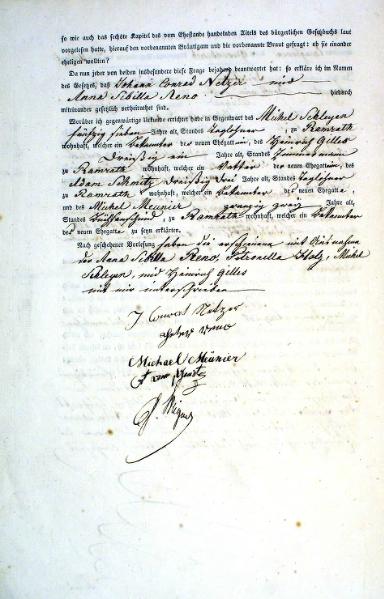 so wie auch das sechste Kapitel des vom Ehestande handelnden Titels des bürgerlichen Gesetzbuchs laut
vorgelesen hatte, hierauf den vorbenannten Bräutigam und die vorbenannte Braut gefragt: ob sie einander
ehelichen wollten?
Da nun jeder von beiden insbesondere diese Frage bejahend beantwortet hat: so erkläre ich im Namen
des Gesetzes, daß Johann Conrad Netzer und
Anna Sibilla Reno hierdurch
miteinander gesetzlich verheirathet sind.
Worüber ich gegenwärtige Urkunde errichtet habe in Gegenwart des Michel Schleyen
fünfzig sieben Jahre alt, Standes Taglohner, zu Ramrath
wohnhaft, welcher ein Bekannter des neuen Ehegatten, des Heinrich Gilles
Dreißig ein Jahre alt, Standes Zimmermann
zu Ramrath wohnhaft, welcher ein des neuen Ehegatten, des
Adam Schmitz Dreißig drei Jahre alt, Standes Taglohner
zu Ramrath wohnhaft, welcher ein Bekannter des neuen Ehegatten,
und des Michel Meunier zwanzig zwei Jahre alt,
Standes, zu Ramrath wohnhaft, welcher ein Bekannter
des neuen Ehegatten zu seyn erklärten.
Nach geschehener Vorlesung haben die mit Ausnahme
der Anna Sibilla Reno, Petronella Holz, Michel
Schleyen, und Heinrich Gilles
mit mir unterschrieben
J. Conrat Netzer
Peter Reno
Michael Meunier